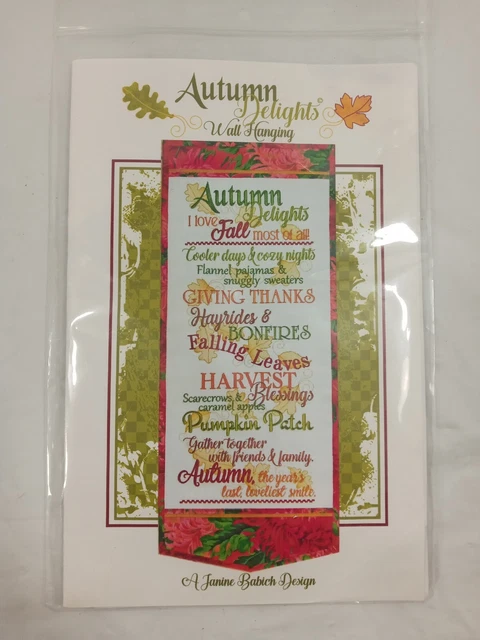 Autumn
Delights
Wall Hanging
Autumn
Delights
I love Fall most of all!
Cooler days & cozy nights
Flannel pajamas &
snuggly sweaters
GIVING THANKS
Hayrides &
BONFIRES
Falling Leaves
HARVEST
Blessings
Scarecrows &
caramel apples
Pumpkin Patch
Gather together
with friends & family.
Autumn, the year's
last, loveliest smile.
A Janine Babich Design